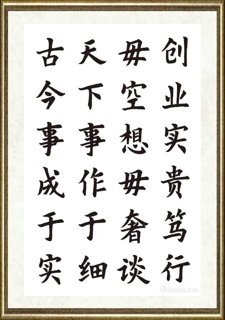 创业实贵笃行
毋空想毋奢谈
天下事作于细
古今事成于实